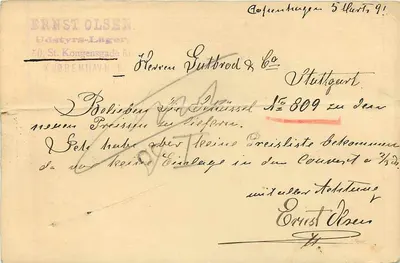 Copenhagen 5 Marts 91.
ERNST OLSEN
Udstyrs-Lager,
50, St. Kongensgade 50
KJØBENHAVN K
Herren Gutbrod & Co
Stuttgart.
Belieben für No 809 zu den
neuen Preisen zu liefern.
Ich habe aber keine Preisliste bekommen
da war keine Einlage in den Couvert a 2/3 91
mit aller Achtung
Ernst Olsen